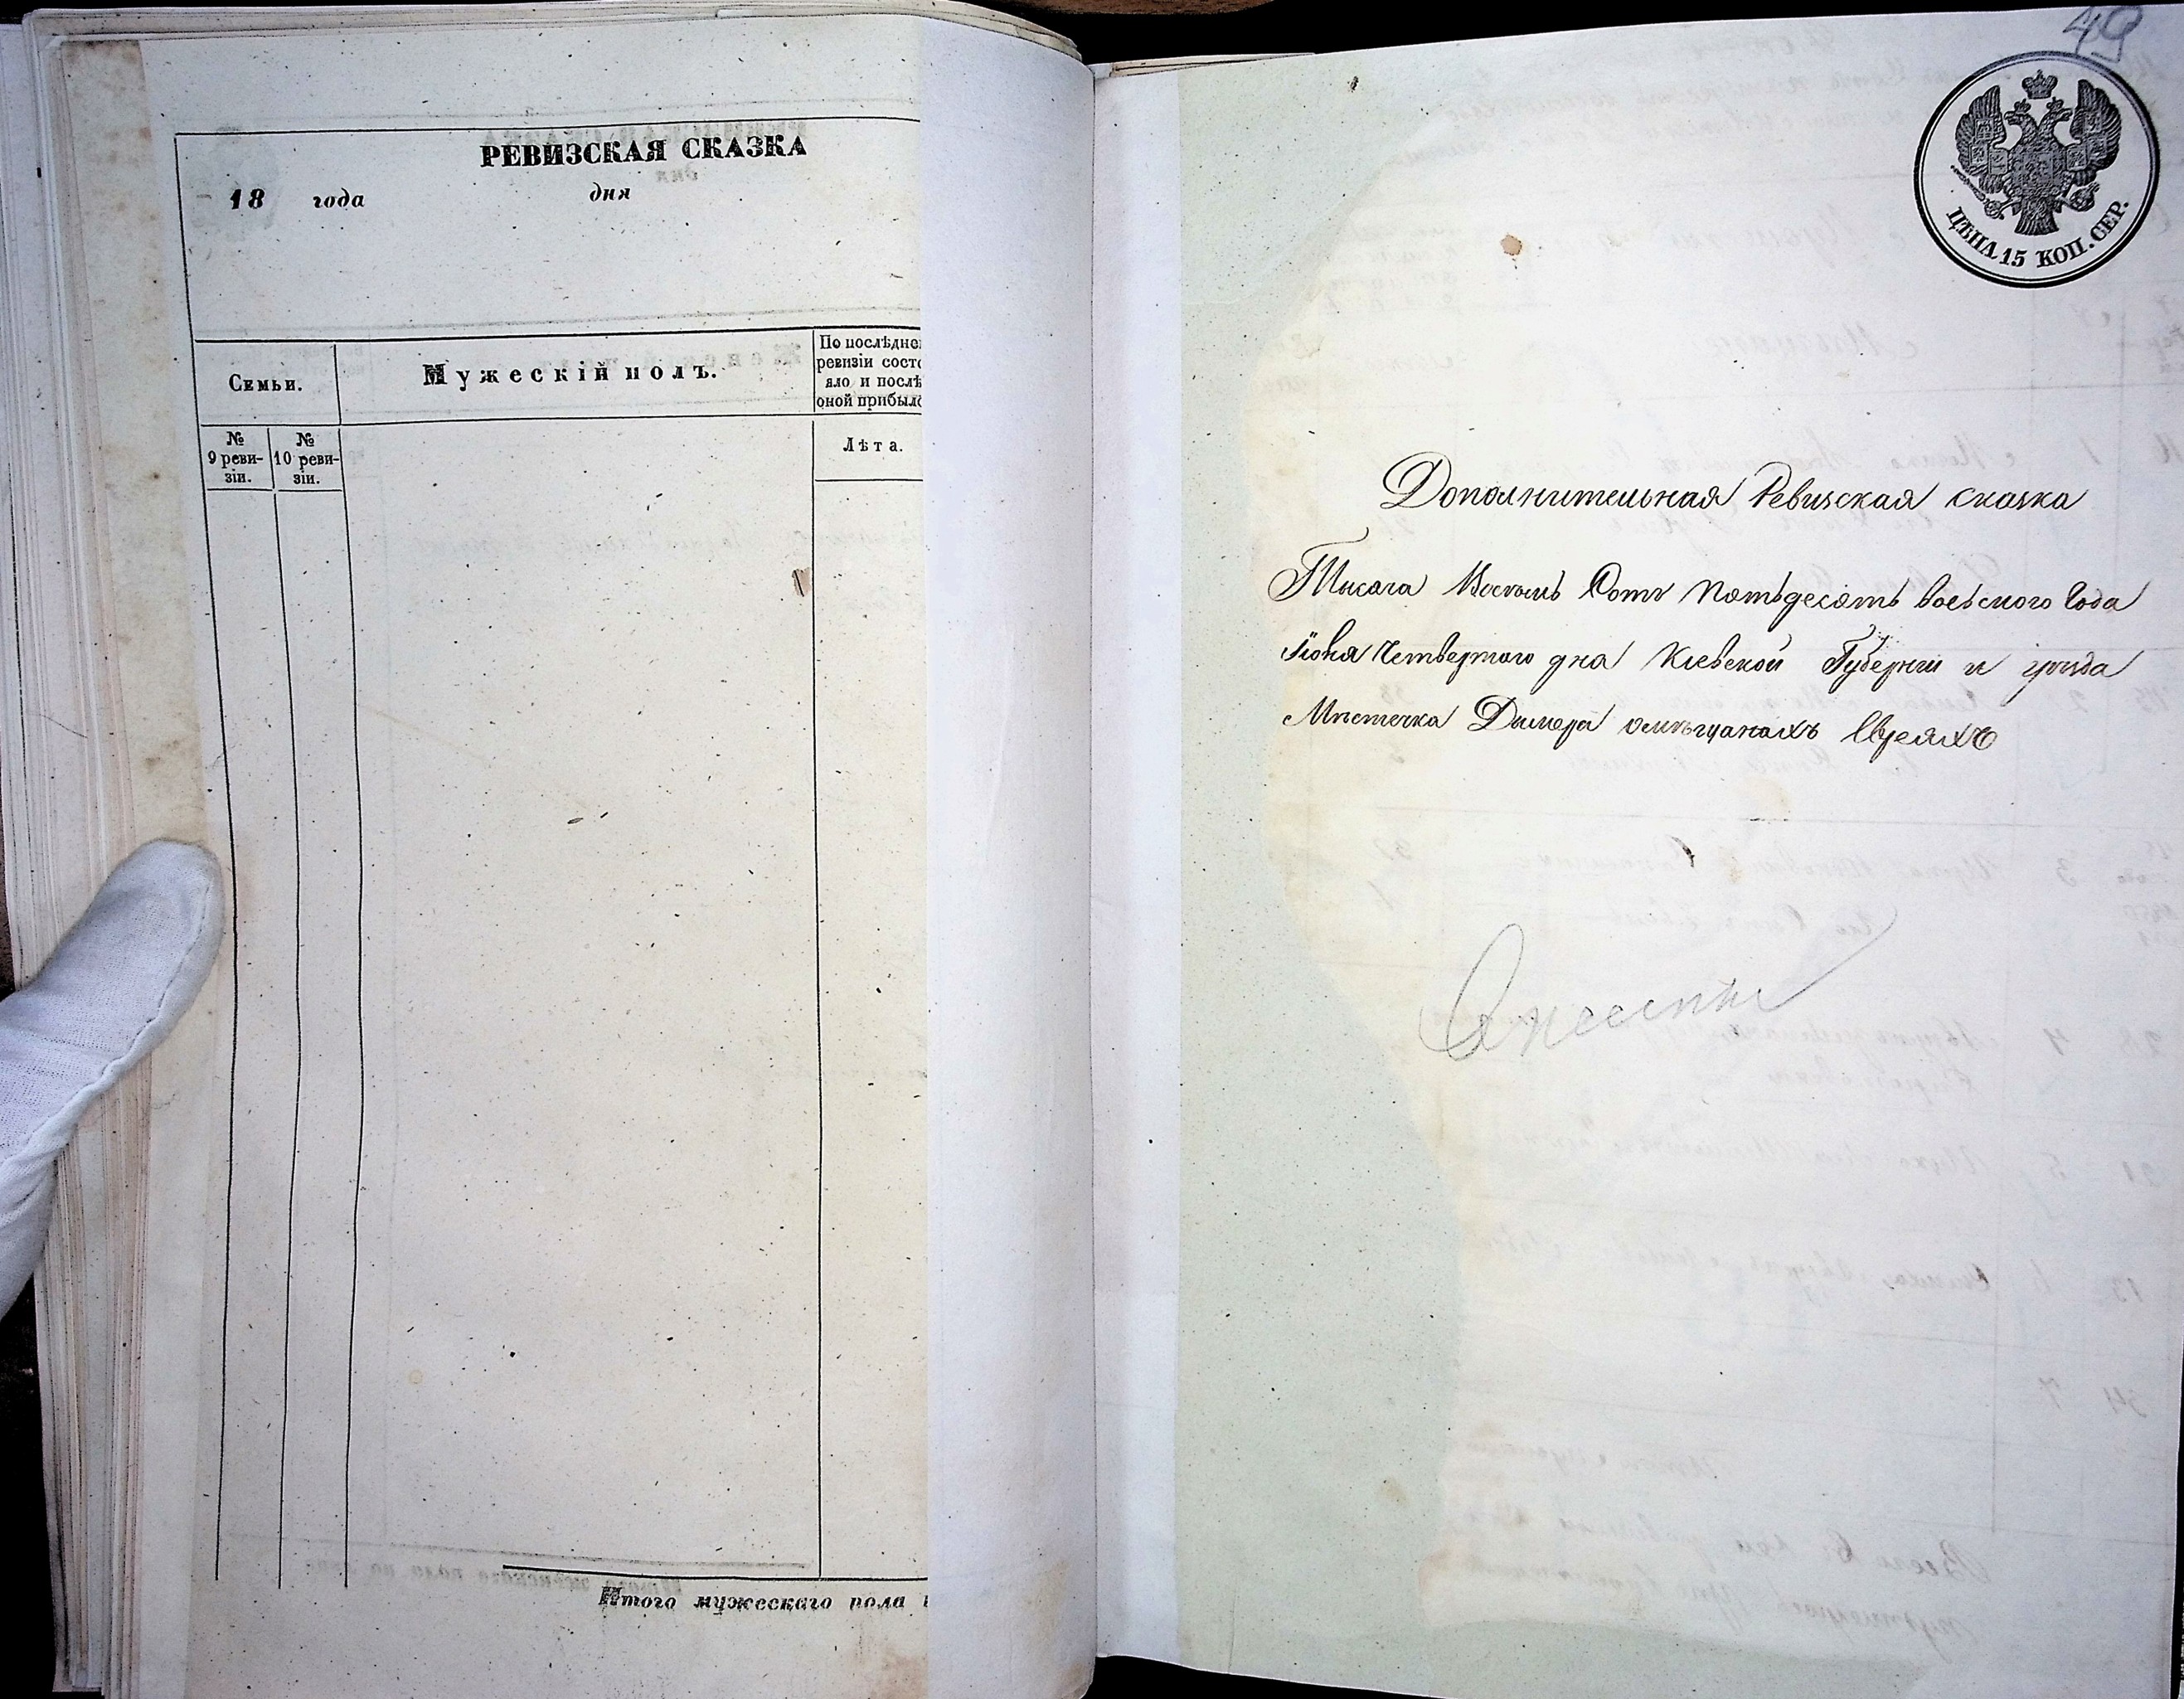 РЕВИЗСКАЯ СКАЗКА
18 года дня
Семьи.
Мужескій полъ.
По послѣдне
ревизіи состо
яло и послѣ
оной прибыло
№
9 реви-
зіи.
№
10 реви-
зіи.
Лѣта.
Итого мужескаго пола
49
ЦѢНА 15 КОП. СЕР.
Дополнительная Ревизская сказка
Тысяча Восемь Сотъ Пятьдесятъ Года
Іюня Четвертого дня Кіевской Губерніи и уезда
Мѣстечка Дымера омѣщанахъ Евреяхъ